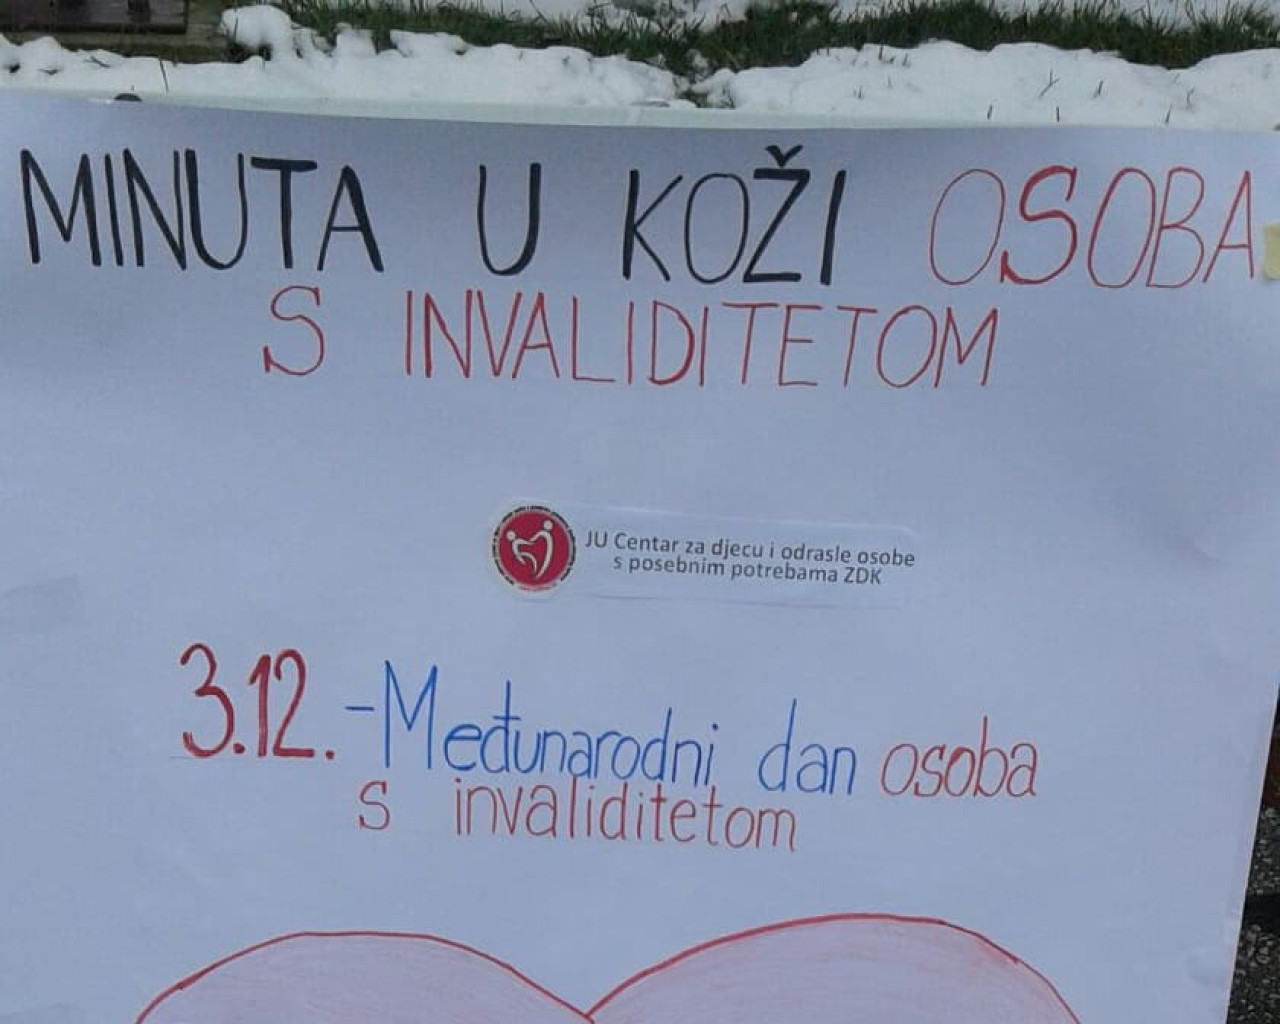 MINUTA U KOŽI OSOBA
S INVALIDITETOM
JU Centar za djecu i odrasle osobe
s posebnim potrebama ZDK
3.12. - Međunarodni dan osoba
s invaliditetom